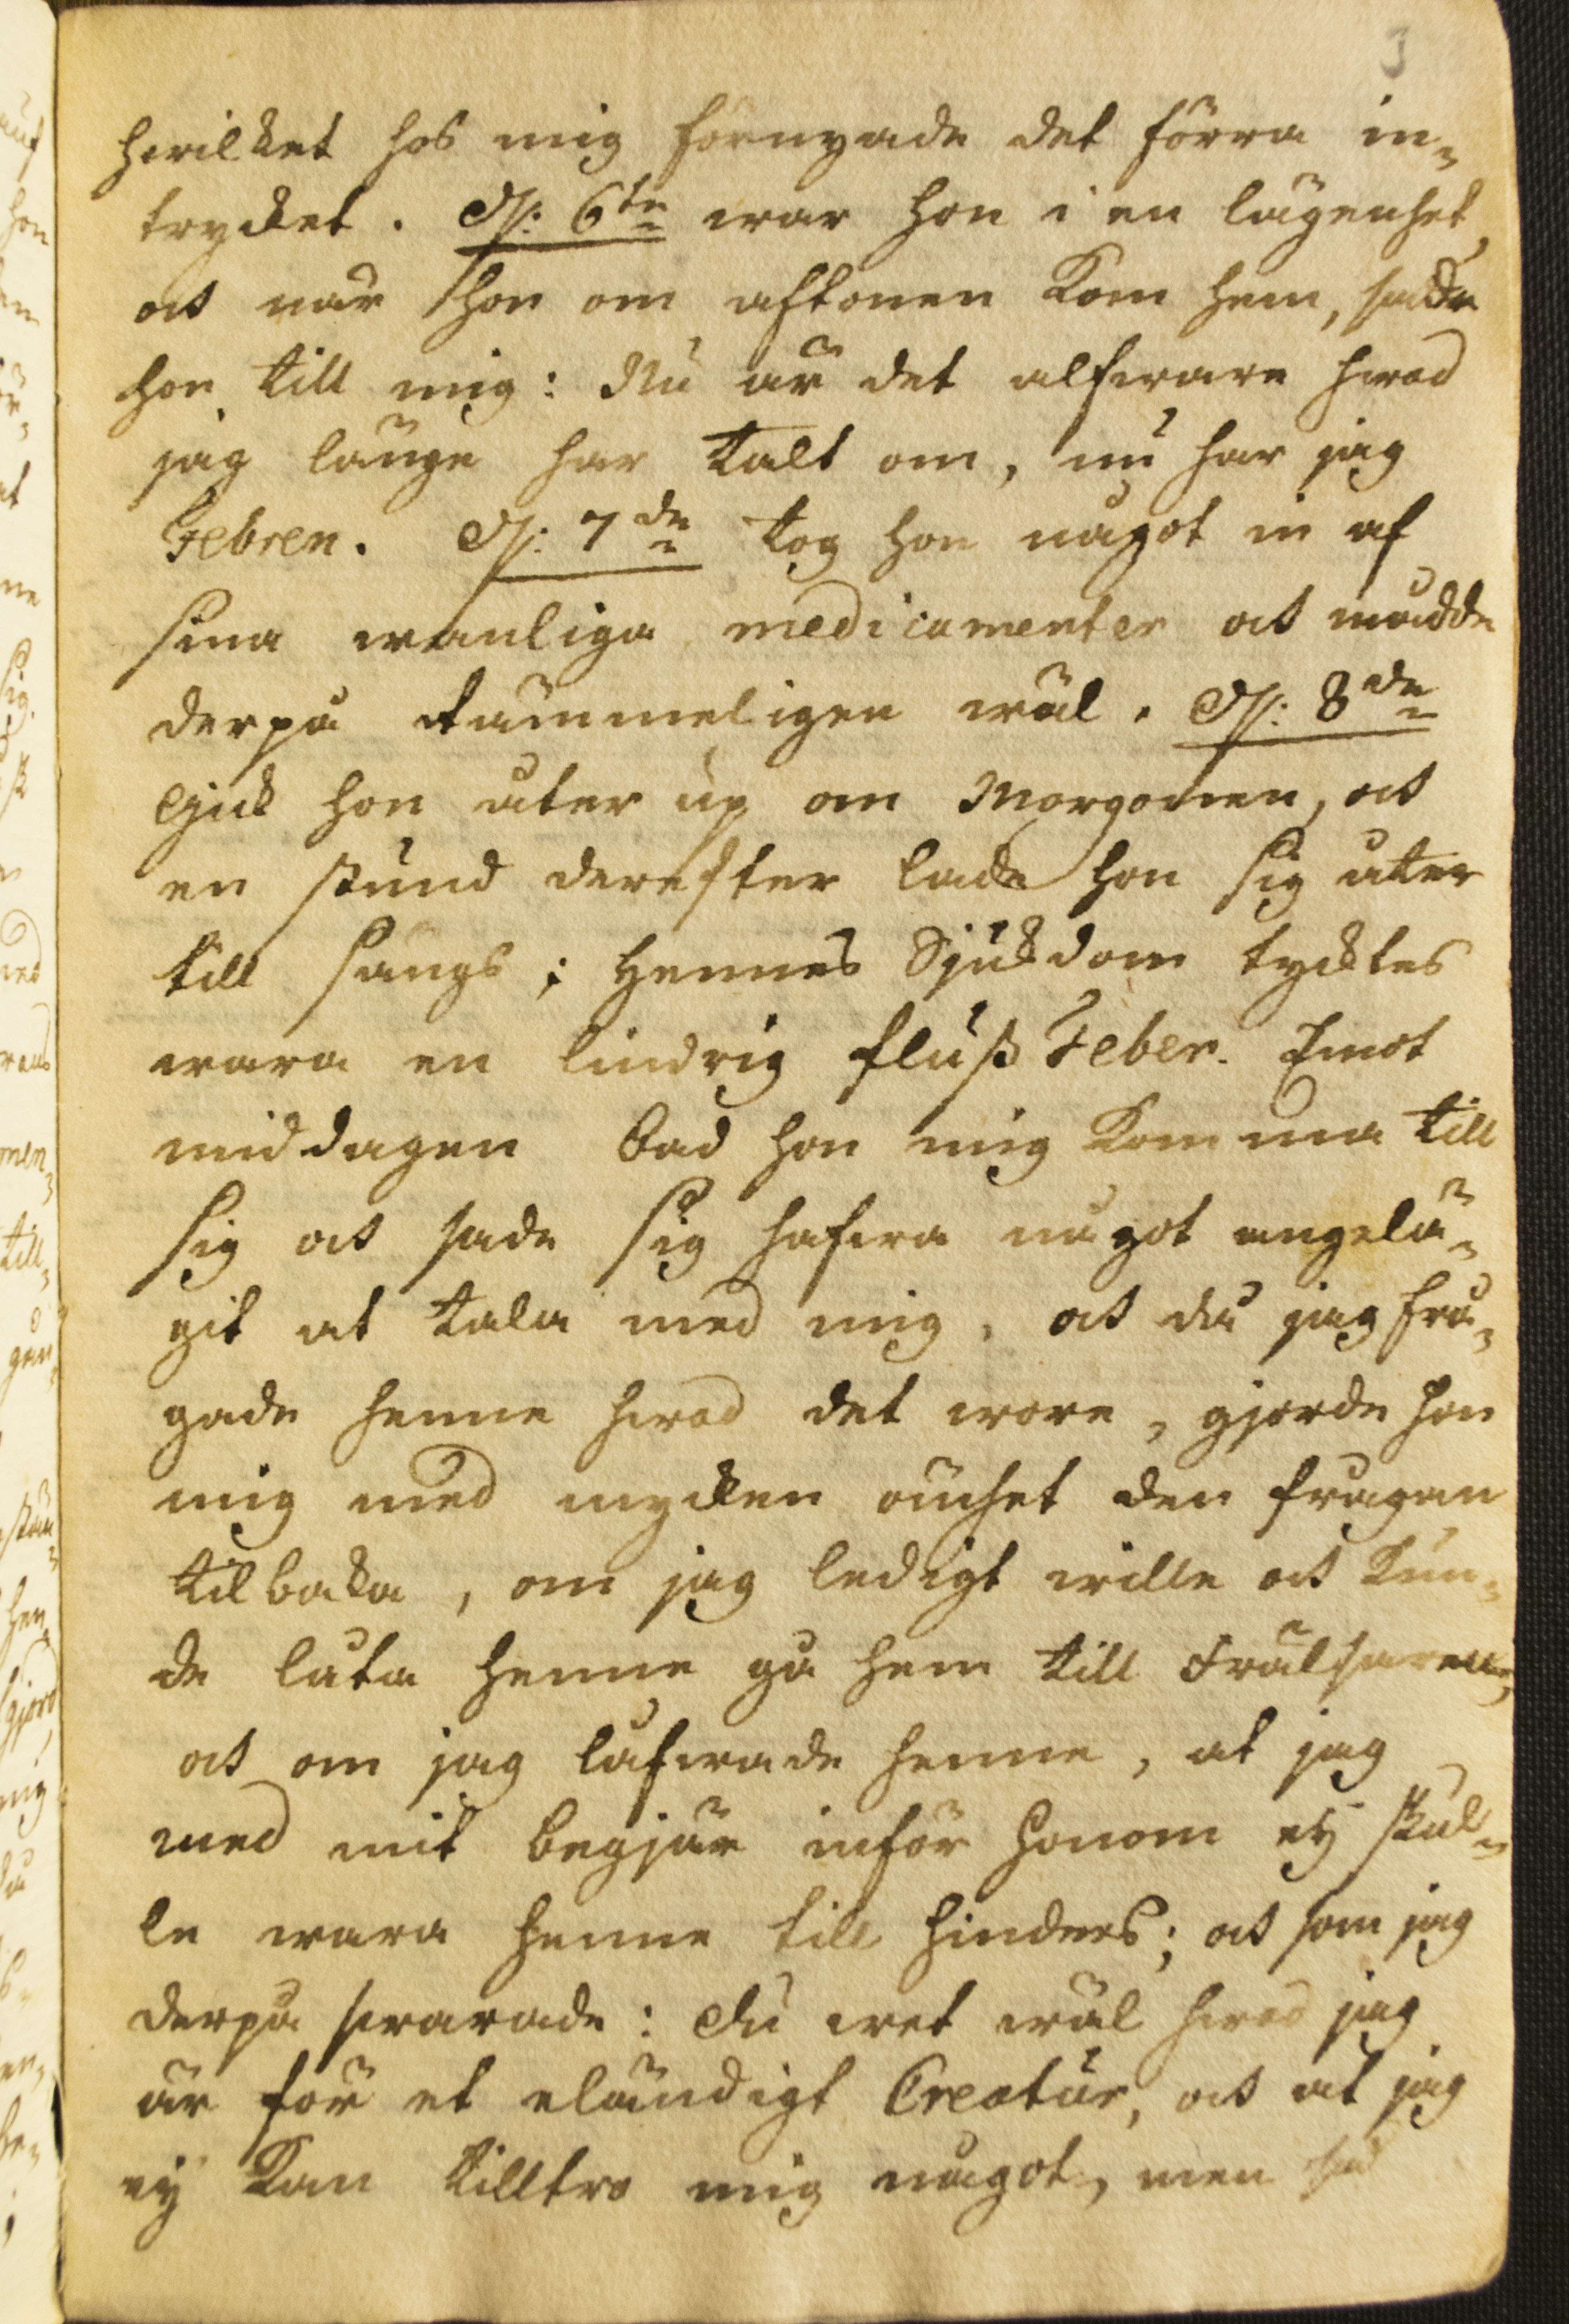 3
hwilket hos mig förnyade det förra in=
trycket. D. 6te war hon i en lägenhet,
och när hon om aftonen kom hem, sade
hon till mig: Nu är det alfware hwad
jag länge har talt om, nu har jag
Febren. D. 7de tog hon något in af
sina wanliga medicamenter och mådde
derpå tämmeligen wäl. D. 8de
Gick hon åter up om Morgonen, och
en stund derefter lade hon sig åter
till sängs; Hennes Sjukdom tycktes
wara en lindrig fluß Feber. Emot
middagen bad hon mig komma till
sig och sade sig hafwa något angelä=
git at tala med mig, och då jag frå=
gade henne hwad det wore, gjorde hon
mig med mycken ömhet den frågan
tilbaka, om jag ledigt wille och kun=
de låta henne gå hem till Frälsaren,
och om jag låfwade henne, at jag
med mit begjär inför honom ej skul=
le wara henne till hinders; och som jag
derpå swarade: Du wet wäl hwad jag
är för et eländigt Creatur, och at jag
ej kan tilltro mig något, men